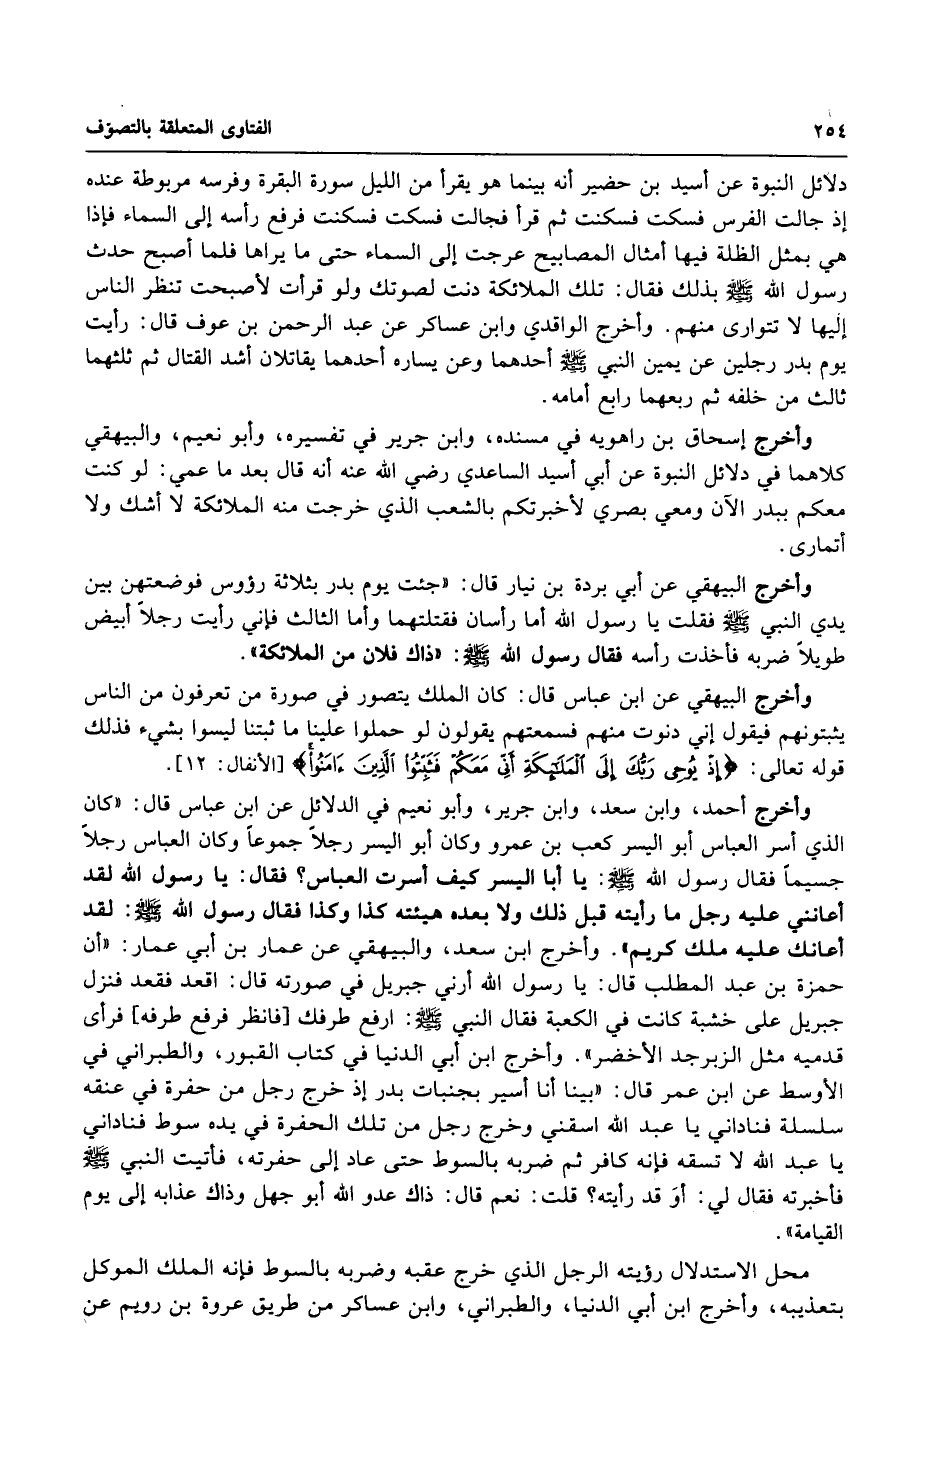 ٢٥٤ الفتاوى المتعلقة بالتصوّف
دلائل النبوة عن أسيد بن حضير أنه بينما هو يقرأ من الليل سورة البقرة وفرسه مربوطة عنده
إذ جالت الفرس فسكت فسكنت ثم قرأ فجالت فسكت فسكنت فرفع رأسه إلى السماء فإذا
هي بمثل الظلة فيها أمثال المصابيح عرجت إلى السماء حتى ما يراها فلما أصبح حدث
رسول الله ﷺ بذلك فقال: تلك الملائكة دنت لصوتك ولو قرأت لأصبحت تنظر الناس
إليها لا تتوارى منهم. وأخرج الواقدي وابن عساكر عن عبد الرحمن بن عوف قال: رأيت
يوم بدر رجلين عن يمين النبي ﷺ أحدهما وعن يساره أحدهما يقاتلان أشد القتال ثم ثلثهما
ثالث من خلفه ثم ربعهما رابع أمامه.
وأخرج إسحاق بن راهويه في مسنده، وابن جرير في تفسيره، وأبو نعيم، والبيهقي
كلاهما في دلائل النبوة عن أبي أسيد الساعدي رضي الله عنه أنه قال بعد ما عمي: لو كنت
معكم ببدر الآن ومعي بصري لأخبرتكم بالشعب الذي خرجت منه الملائكة لا أشك ولا
أتمارى.
وأخرج البيهقي عن أبي بردة بن نيار قال: «جئت يوم بدر بثلاثة رؤوس فوضعتهن بين
يدي النبي ﷺ فقلت يا رسول الله أما رأسان فقتلتهما وأما الثالث فإني رأيت رجلاً أبيض
طويلاً ضربه فأخذت رأسه فقال رسول الله ﷺ: «ذاك فلان من الملائكة».
وأخرج البيهقي عن ابن عباس قال: كان الملك يتصور في صورة من تعرفون من الناس
يثبتونهم فيقول إني دنوت منهم فسمعتهم يقولون لو حملوا علينا ما ثبتنا ليسوا بشيء فذلك
قوله تعالى: ﴿إِذْ يُوحِى رَبُّكَ إِلَى ٱلْمَلَٰٓئِكَةِ أَنِّى مَعَكُمْ فَثَبِّتُوا۟ ٱلَّذِينَ ءَامَنُوا۟﴾ [الأنفال: ١٢].
وأخرج أحمد، وابن سعد، وابن جرير، وأبو نعيم في الدلائل عن ابن عباس قال: «كان
الذي أسر العباس أبو اليسر كعب بن عمرو وكان أبو اليسر رجلاً جموعاً وكان العباس رجلاً
جسيماً فقال رسول الله ﷺ: يا أبا اليسر كيف أسرت العباس؟ فقال: يا رسول الله لقد
أعانني عليه رجل ما رأيته قبل ذلك ولا بعده هيئته كذا وكذا فقال رسول الله ﷺ: لقد
أعانك عليه ملك كريم». وأخرج ابن سعد، والبيهقي عن عمار بن أبي عمار: «أن
حمزة بن عبد المطلب قال: يا رسول الله أرني جبريل في صورته قال: اقعد فقعد فنزل
جبريل على خشبة كانت في الكعبة فقال النبي ﷺ: ارفع طرفك [فانظر فرفع طرفه] فرأى
قدميه مثل الزبرجد الأخضر». وأخرج ابن أبي الدنيا في كتاب القبور، والطبراني في
الأوسط عن ابن عمر قال: «بينا أنا أسير بجنبات بدر إذ خرج رجل من حفرة في عنقه
سلسلة فناداني يا عبد الله اسقني وخرج رجل من تلك الحفرة في يده سوط فناداني
يا عبد الله لا تسقه فإنه كافر ثم ضربه بالسوط حتى عاد إلى حفرته، فأتيت النبي ﷺ
فأخبرته فقال لي: أوَ قد رأيته؟ قلت: نعم قال: ذاك عدو الله أبو جهل وذاك عذابه إلى يوم
القيامة».
محل الاستدلال رؤيته الرجل الذي خرج عقبه وضربه بالسوط فإنه الملك الموكل
بتعذيبه، وأخرج ابن أبي الدنيا، والطبراني، وابن عساكر من طريق عروة بن رويم عن